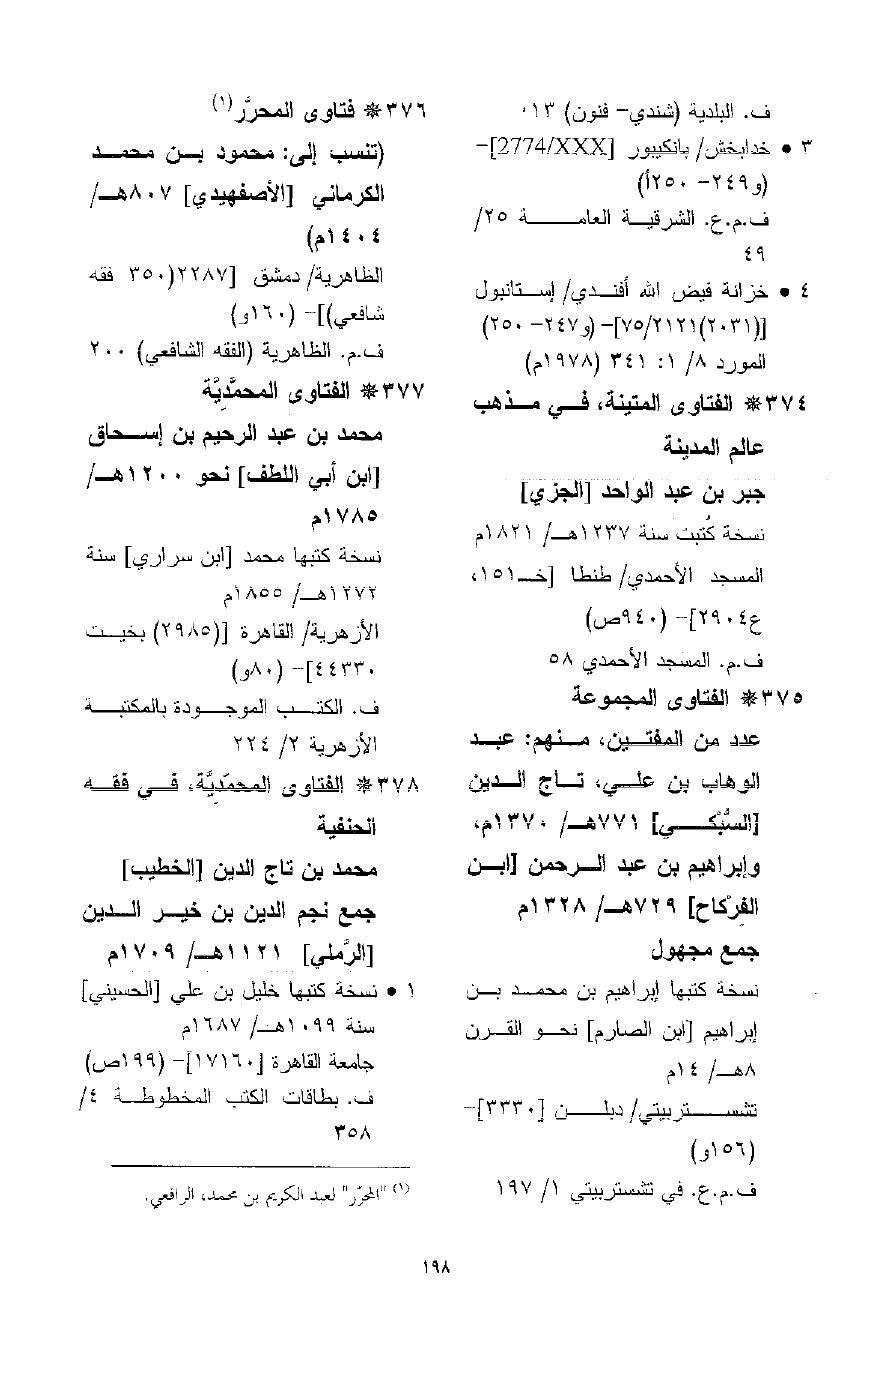 ف. البلدية (شندي- فنون) ١٣.
٣ • خدابخش/ بانكيبور [2774/XXX]-
(و٢٤٩- ٢٥٠أ)
ف.م.ع. الشرقية العامة ٢٥/
٤٩
٤ • خزانة فيض الله أفندي/ إستانبول
[(٢٠٣١)٧٥/٢١٢١]- (و٢٤٧- ٢٥٠)
المورد ٨/ ١: ٣٤١ (١٩٧٨م)
٣٧٤* الفتاوى المتينة، في مذهب
عالم المدينة
جبر بن عبد الواحد [الجزي]
نسخة كُتبت سنة ١٢٣٧هـ/ ١٨٢١م
المسجد الأحمدي/ طنطا [خـ١٥١،
ع٢٩٠٤]- (٩٤٠ص)
ف.م. المسجد الأحمدي ٥٨
٣٧٥* الفتاوى المجموعة
عدد من المفتين، منهم: عبد
الوهاب بن علي، تاج الدين
[السُّبْكي] ٧٧١هـ/ ١٣٧٠م،
وإبراهيم بن عبد الرحمن [ابن
الفِرْكاح] ٧٢٩هـ/ ١٣٢٨م
جمع مجهول
نسخة كتبها إبراهيم بن محمد بن
إبراهيم [ابن الصارم] نحو القرن
٨هـ/ ١٤م
تشستربيتي/ دبلن [٣٣٣٠]-
(١٥٦و)
ف.م.ع. في تشستربيتي ١/ ١٩٧
٣٧٦* فتاوى المحرَّر(١)
(تنسب إلى: محمود بن محمد
الكرماني [الأصفهيدي] ٨٠٧هـ/
١٤٠٤م)
الظاهرية/ دمشق [٢٢٨٧(٣٥٠ فقه
شافعي)]- (١٦٠و)
ف.م. الظاهرية (الفقه الشافعي) ٢٠٠
٣٧٧* الفتاوى المحمَّدِيَّة
محمد بن عبد الرحيم بن إسحاق
[ابن أبي اللطف] نحو ١٢٠٠هـ/
١٧٨٥م
نسخة كتبها محمد [ابن سراري] سنة
١٢٧٢هـ/ ١٨٥٥م
الأزهرية/ القاهرة [(٢٩٨٥) بخيت
٤٤٣٣٠]- (٨٠و)
ف. الكتب الموجودة بالمكتبة
الأزهرية ٢/ ٢٢٤
٣٧٨* الفتاوى المحمّدِيَّة، في فقه
الحنفية
محمد بن تاج الدين [الخطيب]
جمع نجم الدين بن خير الدين
[الرَّملي] ١١٢١هـ/ ١٧٠٩م
١ • نسخة كتبها خليل بن علي [الحسيني]
سنة ١٠٩٩هـ/ ١٦٨٧م
جامعة القاهرة [١٧١٦٠]- (١٩٩ص)
ف. بطاقات الكتب المخطوطة ٤/
٣٥٨
(١) "المحرّر" لعبد الكريم بن محمد، الرافعي.
١٩٨